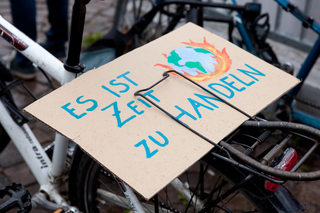 ES IST
ZEIT
ZU HANDELN